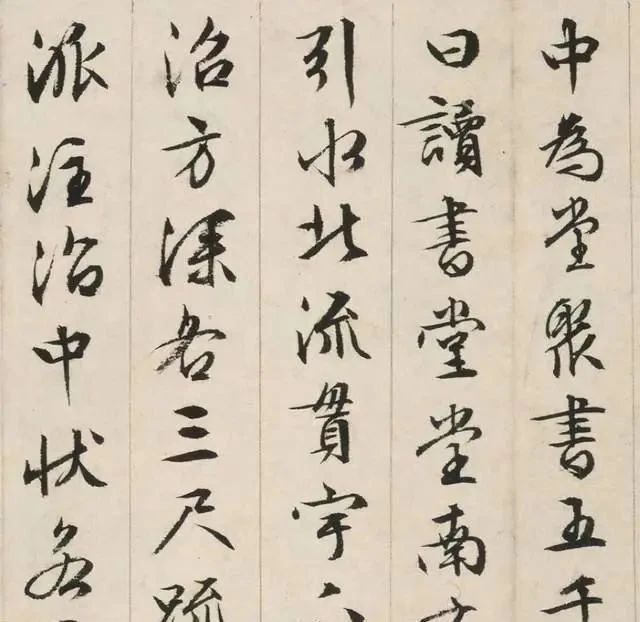 中為堂聚書五千
曰讀書堂堂南
引水北流貫宇
沼方深各三尺疏
派注沼中狀若